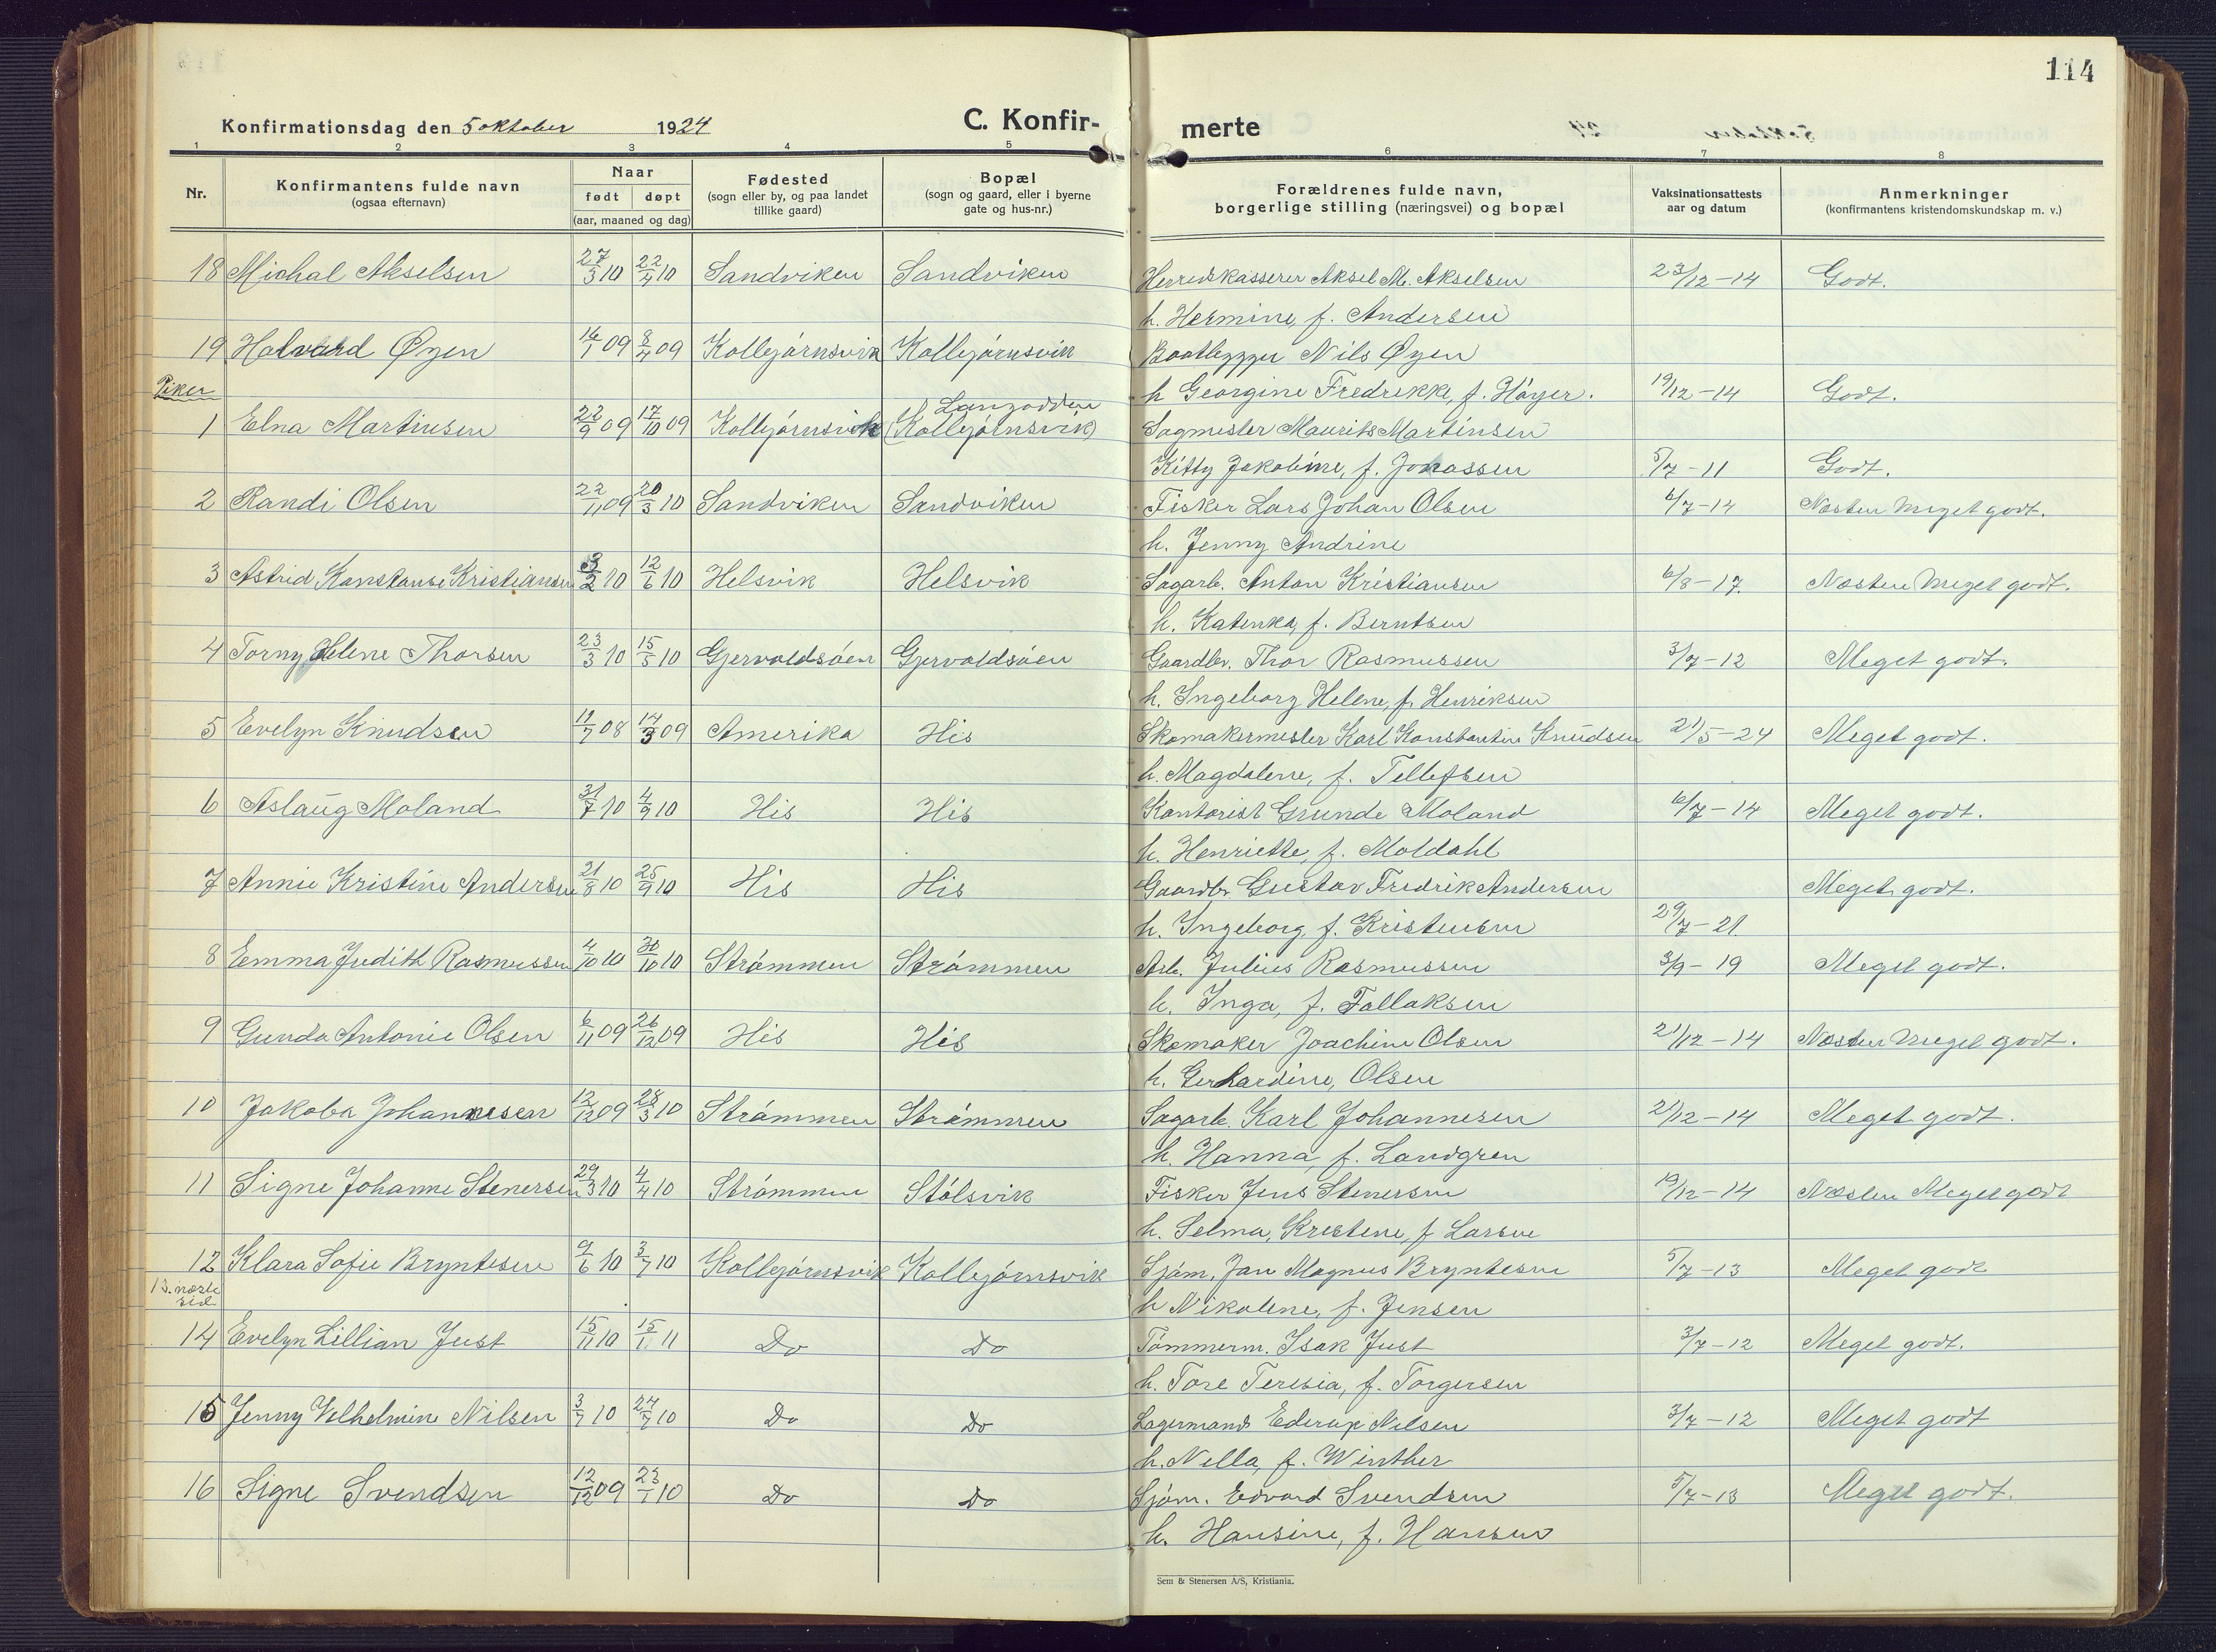 114
Konfirmationsdag den 5 oktober 1924
C. Konfir-
merte
1 2 3 4 5 6 7 8
Nr.
Konfirmantens fulde navn
(ogsaa efternavn)
Naar
født døpt
(aar, maaned og dag)
Fødested
(sogn eller by, og paa landet
tillike gaard)
Bopæl
(sogn og gaard, eller i byerne
gate og hus-nr.)
Forældrenes fulde navn,
borgerlige stilling (næringsvei) og bopæl
Vaksinationsattests
aar og datum
Anmerkninger
(konfirmantens kristendomskundskap m. v.)
18 Michal Akselsen 27/3 10 22/4 10 Sandviken Sandviken Herredskasserer Aksel M. Akselsen 23/12-14 Godt.
h. Hermine, f. Andersen
19 Halvard Øyen 14/1 09 8/4 09 Kolbjörnsvik Kolbjörnsvik Baatbygger Nils Øyen
h Georgine Fredrikke, f. Höyer. 19/12-14 Godt.
Piker
Langodden
1 Elna Martinsen 22/9 09 17/10 09 Kolbjörnsvik (Kolbjörnsvik) Sagmester Maurits Martinsen
Kitty Jakobine, f. Jonassen 5/7-11 Godt.
2 Randi Olsen 22/11 09 20/3 10 Sandviken Sandviken Fisker Lars Johan Olsen 6/7-14 Næsten Meget godt.
h. Jenny Andrine
3 Astrid Konstanse Kristiansen 3/2 10 12/6 10 Helsvik Helsvik Sagarb. Anton Kristiansen 6/8-17. Næsten Meget godt.
h. Katenka, f. Berntsen
4 Torny Helene Thorsen 23/3 10 15/5 10 Gjervoldsöen Gjervoldsöen Gaardbr. Thor Rasmussen 3/7-12 Meget godt.
h. Ingeborg Helene, f. Henriksen
5 Evelyn Knudsen 11/7 08 14/3 09 Amerika His Skomakermester Karl Konstantin Knudsen 21/5-24 Meget godt.
h. Magdalene, f. Tellefsen
6 Aslaug Moland 31/7 10 4/9 10 His His Kontorist Gunde Moland 6/7-14 Meget godt.
h. Henriette, f. Moldahl
7 Annie Kristine Andersen 21/8 10 25/9 10 His His Gaardbr. Gustav Fredrik Andersen Meget godt.
h. Ingeborg, f. Kristensen 29/7-21
8 Emma Judith Rasmussen 4/10 10 30/10 10 Strömmen Strömmen Arb. Julius Rasmussen 3/9-19 Meget godt.
h. Inga, f. Fallaksen
9 Gunda Antonie Olsen 6/11 09 26/12 09 His His Skomaker Joachim Olsen 21/12-14 Næsten Meget godt.
h. Gerhardine, Olsen
10 Jakoba Johannesen 12/12 09 28/3 10 Strömmen Strömmen Sagarb. Karl Johannesen 21/12-14 Meget godt.
h. Hanna, f. Landgren
11 Signe Johanne Stenersen 29/3 10 4/4 10 Strömmen Stölsvik Fisker Jens Stenersen 19/12-14 Næsten Meget godt
h. Selma, Kristene, f Larsen
12 Klara Sofie Bryntesen 9/6 10 3/7 10 Kolbjörnsvik Kolbjörnsvik Sjöm. Jan Magnus Bryntesen 5/7-13 Meget godt
13. næste
side
h Nikoline, f. Jensen
14 Evelyn Lillian Just 15/11 10 15/1 11 Do Do Tömmerm. Isak Just 3/7-12 Meget godt.
h. Tore Teresia, f. Torgersen
15 Jenny Vilhelmine Nilsen 3/7 10 24/7 10 Do Do Lagermand Nilsen 3/7-12 Meget godt
h. Nella, f. Winther
16 Signe Svendsen 12/12 09 23/1 10 Do Do Sjöm. Edvard Svendsen 5/7-13 Meget godt.
h. Hansine, f. Hansen
Sem & Stenersen A/S, Kristiania.